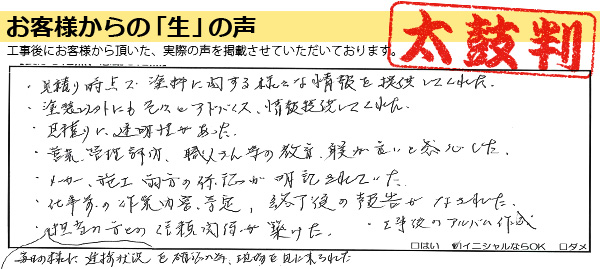 お客様からの「生」の声
太鼓判
工事後にお客様から頂いた、実際の声を掲載させていただいております。
・見積り時点で塗料に関する様々な情報を提供してくれた。
・塗装以外にも アドバイス、情報提供してくれた。
・見積りに透明性があった。
・営業、管理部門、職人さん等の教育、躾が良いと感心した。
・メーカー、施工両方の保証が明記されていた。
・仕事前の作業内容、予定、終了後の報告がなされた。
・担当の方との信頼関係が築けた。 ・工事後のアルバム作成
□はい □イニシャルならOK □ダメ
毎日の様に進捗状況を確認 、現場を見に来られた